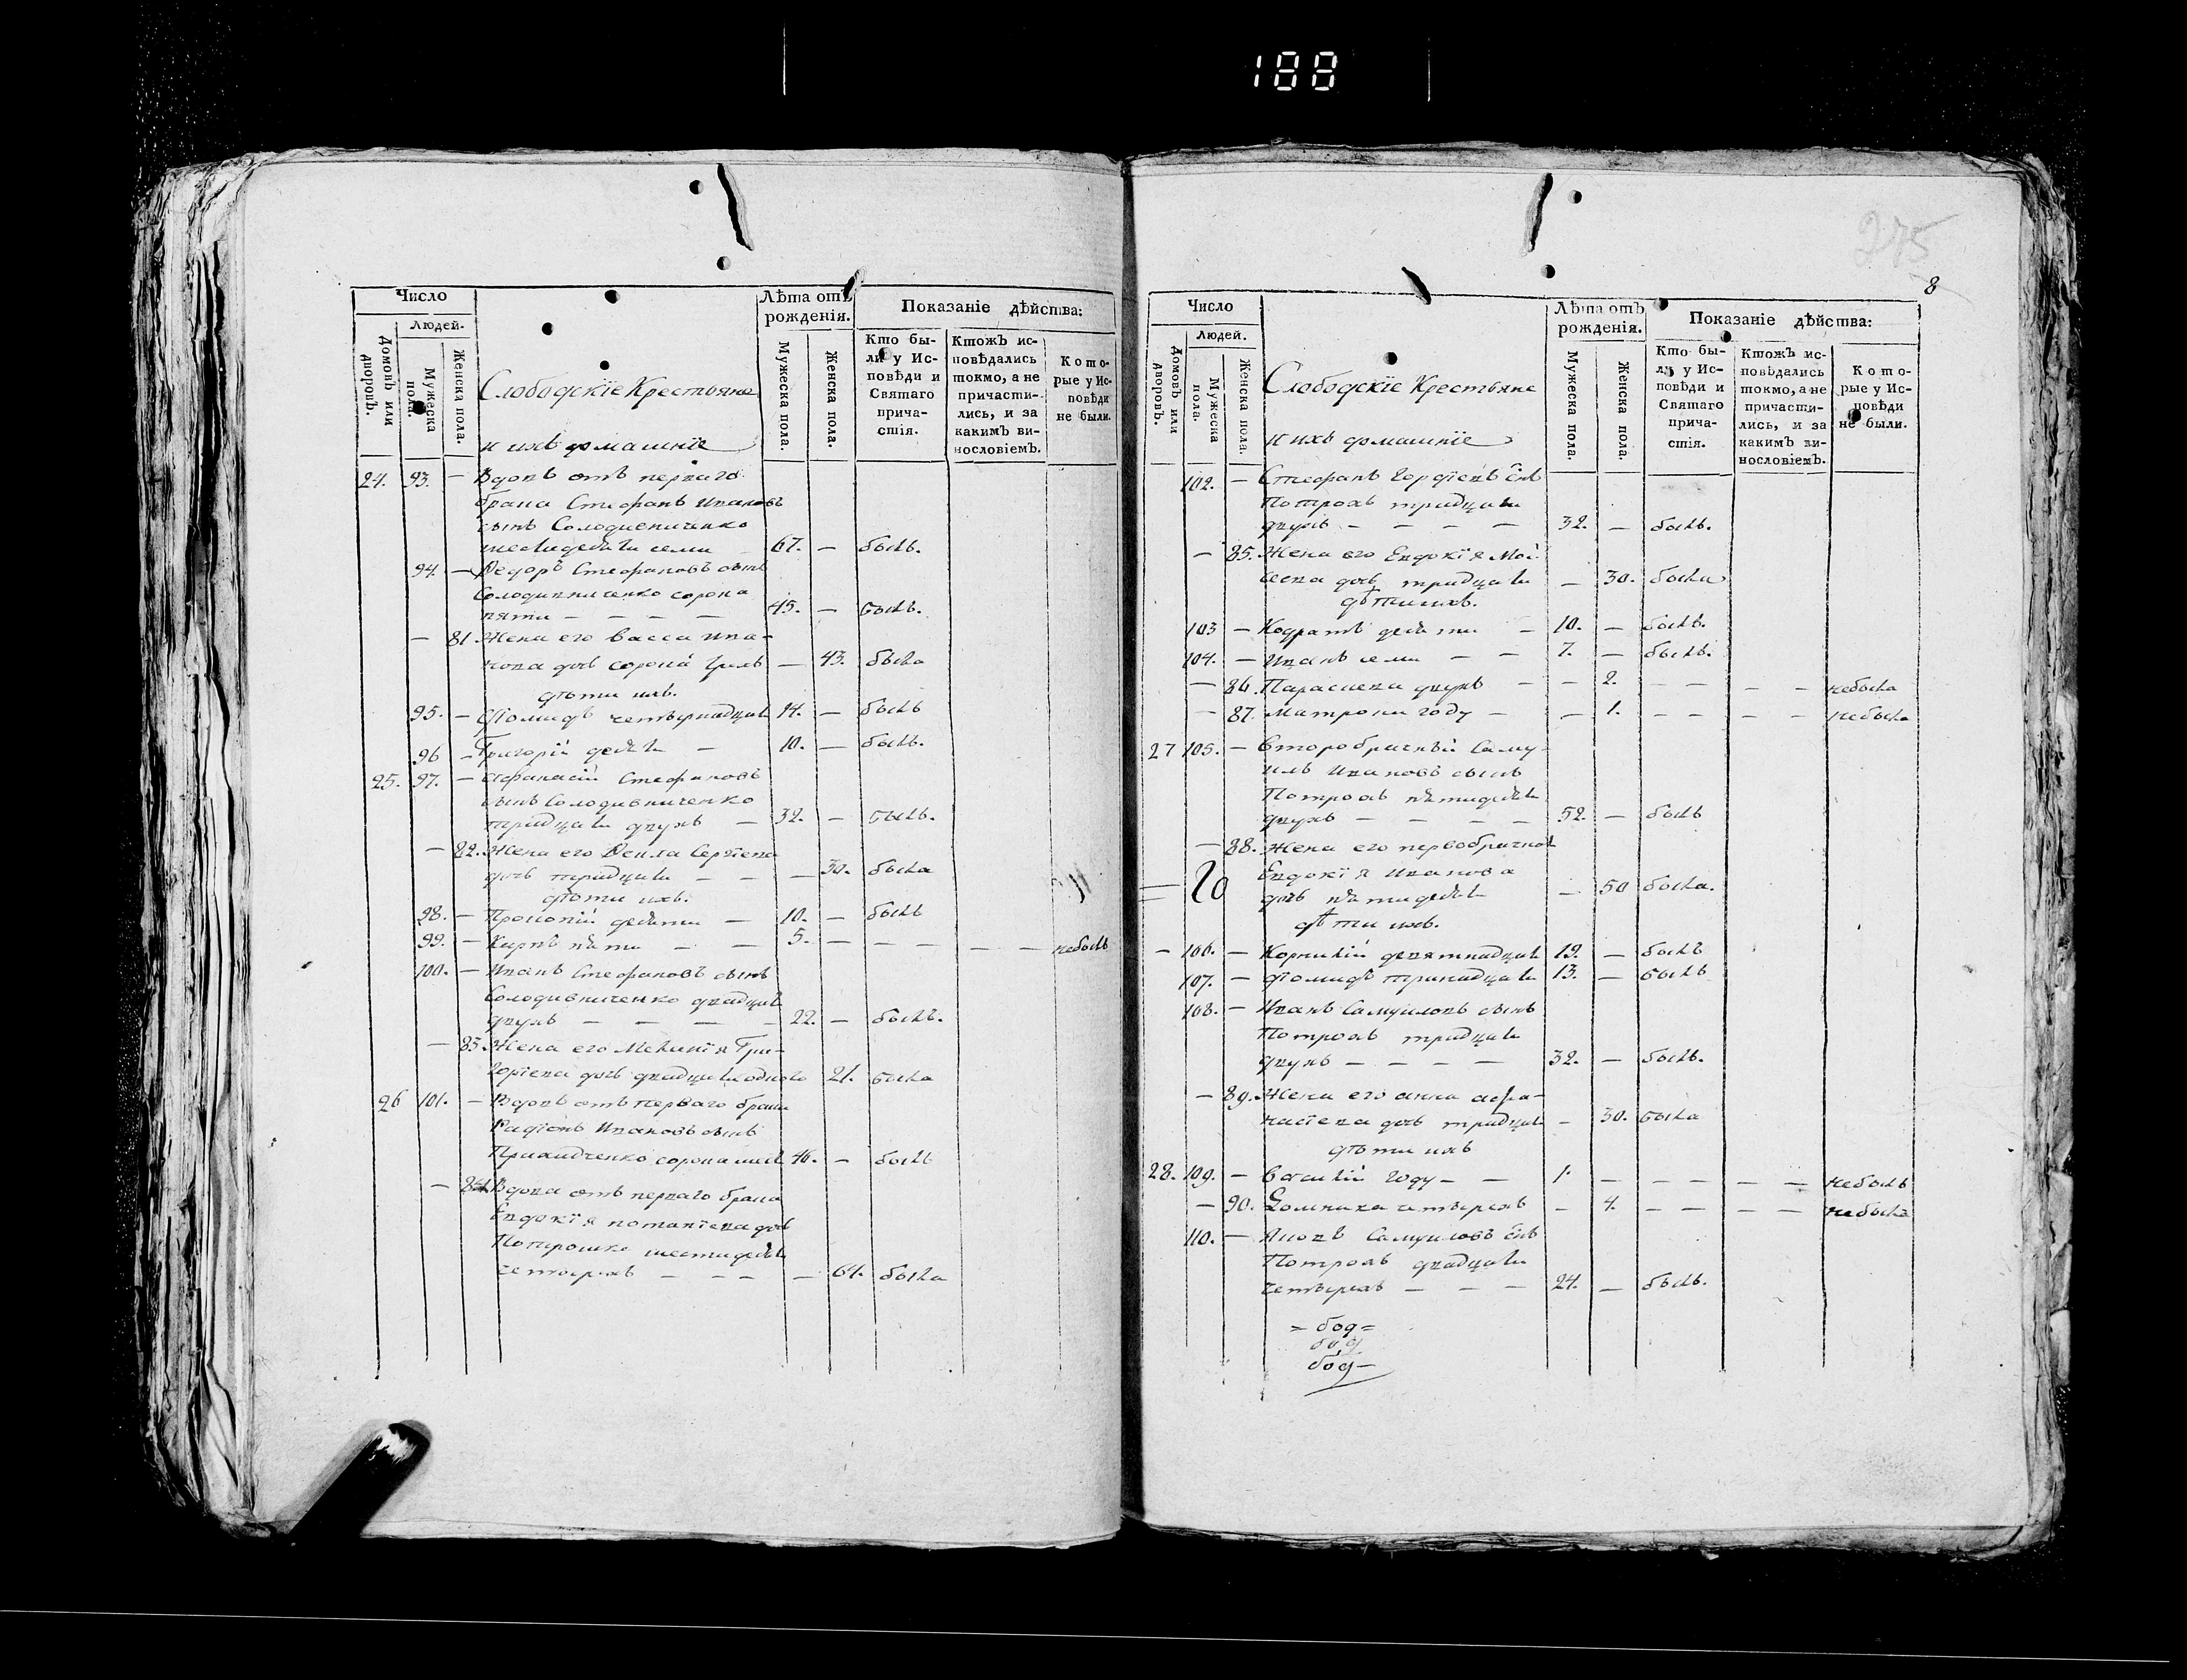 188
Число
Людей.
Домовъ или дворовъ.
Мужеска пола.
Женска пола.
Слободскіе Крестьяне
и ихъ домашніе
Лѣта отъ рожденія.
Мужеска пола.
Женска пола.
Показаніе дѣйства:
Кто были у Исповѣди и Святаго причастія.
Ктожъ исповѣдались токмо, а не причастились, и за какимъ винословіемъ.
Которые у Исповѣди не были.
24. 93. — Вдовъ отъ перваго
брака Стефанъ Ивановъ
сынъ Солодивниченко
шестидесяти семи 67. — былъ.
94. — Ѳедоръ Стефановъ сынъ
Солодивниченко сорока
пяти — — — — 45. — былъ.
— 81. Жена его Васса Ива-
нова дочь сорока трехъ — 43. была
дѣти ихъ.
95. — Діомидъ четырнадцати 14. — былъ
96 — Григорій десяти — 10. — былъ.
25. 97. — Афанасій Стефановъ
сынъ Солодивниченко
тридцати двухъ — 32. — былъ.
— 82. Жена его Ѳекла Сергіева
дочь тридцати — — — 30. была
дѣти ихъ.
98. — Прокопій десяти — 10. — былъ
99. — Кирпъ пяти — — 5. — — — — — небылъ
100. — Иванъ Стефановъ сынъ
Солодивниченко двадцати
двухъ — — — — 22. — былъ.
— 83. Жена его Мелания Гри-
горіева дочь двадцати одного 21. была
26 101. — Вдовъ отъ перваго брака
Радіонъ Ивановъ сынъ
сорока шести 46. — былъ
— 84. Вдова отъ перваго брака
Евдокія Потапіева дочь
шестидесяти
четырехъ — — — — 64. была
275
8
Число
Людей.
Домовъ или дворовъ.
Мужеска пола.
Женска пола.
Слободскіе Крестьяне
и ихъ домашніе
Лѣта отъ рожденія.
Мужеска пола.
Женска пола.
Показаніе дѣйства:
Кто были у Исповѣди и Святаго причастія.
Ктожъ исповѣдались токмо, а не причастились, и за какимъ винословіемъ.
Которые у Исповѣди не были.
102. — Стефанъ Гордіевъ снъ
Потрохъ тридцати
двухъ — — — — 32. — былъ.
— 85. Жена его Евдокія Мой-
сеева дочь тридцати — 30. была
дѣти ихъ.
103 — Кодратъ десяти — 10. — былъ.
104. — Иванъ семи — — 7. — былъ.
— 86. Параскева двухъ — — 2. — — — — небыла
— 87. Матрона году — — 1. — — — — небыла
27 105. — Второбрачный Саму-
илъ Ивановъ сынъ
Потрохъ пятидесяти
двухъ — — — — 52. — былъ
— 88. Жена его первобрачная
Евдокія Иванова
дочь пятидесяти — 50 была.
дѣти ихъ.
— 106. — Корнилій девятнадцати 19. — былъ
107. — Діомидъ тринадцати 13. — былъ
108. — Иванъ Самуиловъ сынъ
Потрохъ тридцати
двухъ — — — — 32. — былъ.
— 89. Жена его Анна Афа-
насіева дочь тридцати — 30. была
дѣти ихъ
28. 109. — Василій году — — 1. — — — — — небылъ
— 90. Домникія четырехъ — 4. — — — — небыла
110. — Яковъ Самуиловъ снъ
Потрохъ двадцати
четырехъ — — — 24. — былъ.